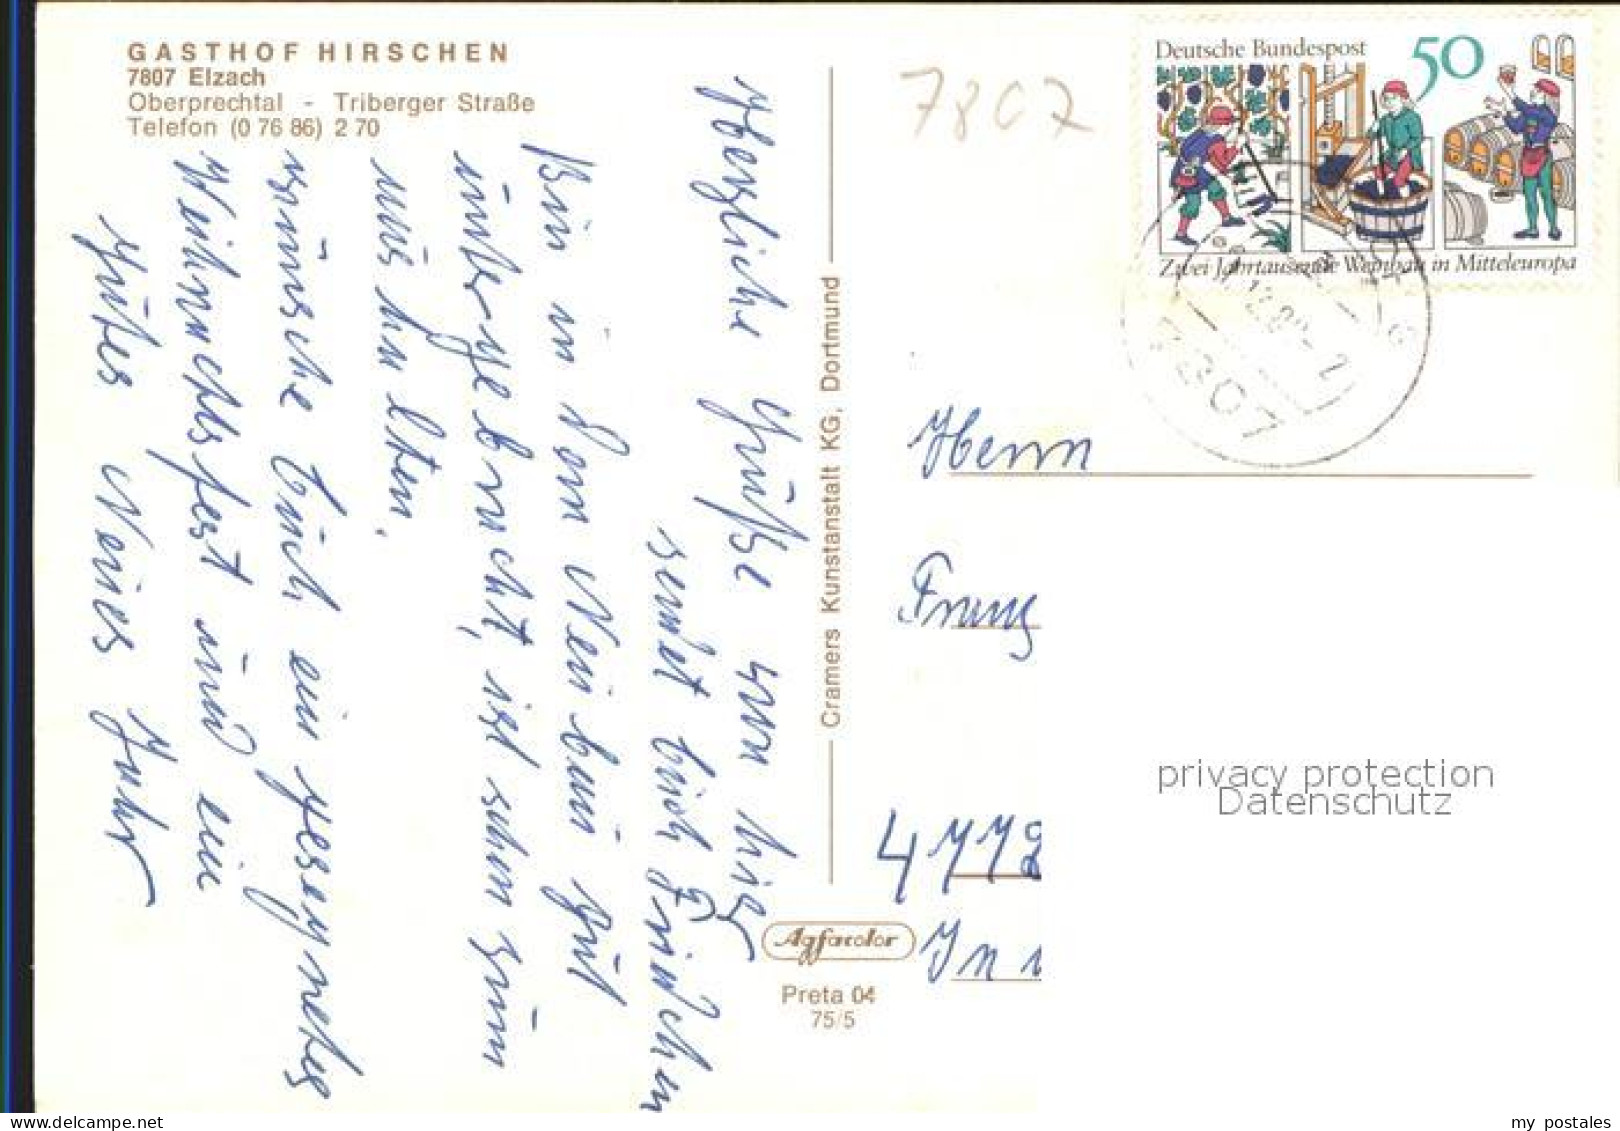 GASTHOF HIRSCHEN
7807 Elzach
Oberprechtal - Triberger Straße
Telefon (0 76 86) 2 70
Herzliche Grüße von hier
sendet Euch Friedchen
Bin in dem Neubau gut
untergebracht, ist schon zum
aushalten.
wünsche Euch ein gesegnetes
Weihnachtsfest und ein
gutes Neues Jahr
Cramers Kunstanstalt KG, Dortmund
Agfacolor
Preta 04
75/5
7807
Deutsche Bundespost 50
Zwei Jahrtausende Weinbau in Mitteleuropa
7807
Herrn
Franz
privacy protection
Datenschutz
my postales